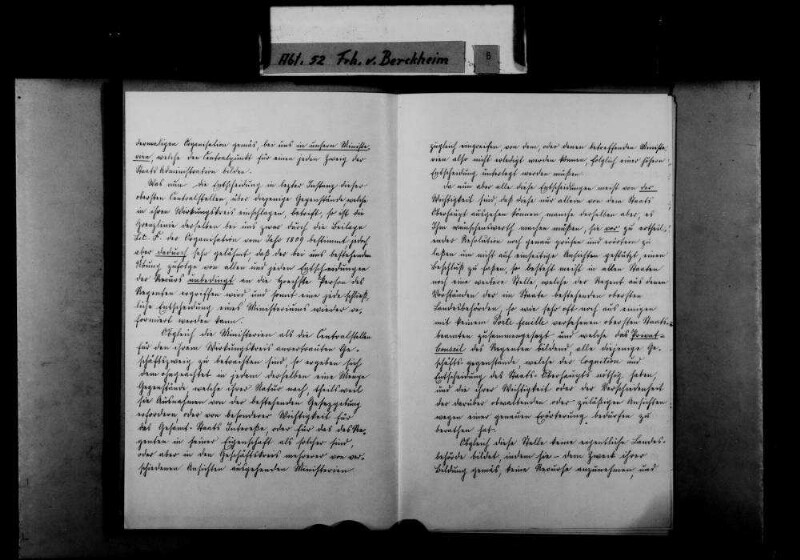 Abt. 52 Frh. v. Berckheim
8
dermaligen Organisation gemäs, bei uns in unsern Ministe-
rien, welche den Centralpunkt für einen jeden Zweig der
Staats Administration bilden.
Was nun die Entscheidung in lezter Instanz dieser
obersten Centralstellen, über diejenige Gegenstände welche
in ihren Wirkungskreis einschlagen, betrifft, so ist die
Grenzlinie derselben bei uns zwar durch die Beilage
Lit. F. der Organisation vom Jahr 1809 bestimmt, jedoch
aber dadurch sehr gelähmt, daß der bei uns bestehenden
Uibung zufolge von allen und jeden Entscheidungen
der Recurs unbedingt an die Höchste Person des
Regenten ergriffen wird und somit eine jede schließ-
liche Entscheidung eines Ministeriums wieder re-
formirt werden kann.
Obgleich die Ministerien als die Centralstellen
für den ihrem Wirkungskreis anvertrauten Ge-
schäftszweig zu betrachten sind, so ergeben sich
dem ohngeachtet in jedem derselben eine Menge
Gegenstände, welche ihrer Natur nach, theils weil
sie Ausnahmen von der bestehenden Gesezgebung
erfordern, oder von besonderer Wichtigkeit für
das Gesamt-Staats Interesse, oder für das des Re-
genten in seiner Eigenschaft als solcher sind,
oder aber in den Geschäftskreis mehrerer von ver-
schiedenen Ansichten ausgehenden Ministerien
zugleich eingreifen, von dem, oder denen betreffenden Ministe-
rien also nicht erledigt werden können, folglich einer höhern
Entscheidung unterlegt werden müßen.
Da nun aber alle diese Entscheidungen meist von der
Wichtigkeit sind, daß sie nur allein von dem Staats
Oberhaupt ausgehen können, manche derselben aber, es
Ihm wünschenswerth machen müßen, sie vor zu ertheil-
ender Resolution noch genau prüfen und erörtern zu
laßen um nicht auf einseitige Ansichten gestüzt, einen
Beschluß zu faßen, so besteht meist in allen Staaten
noch eine weitere Stelle, welche der Regent aus denen
Vorständen der im Staate bestehenden obersten
Landesbehörden, so wie sehr oft noch aus einigen
mit keinem Porte-feuille versehenen obersten Staats-
beamten zusammengesezt und welche das Privat-
Conseil des Regenten bildend, alle diejenige Ge-
schäfts gegenstände welche der Cognition und
Entscheidung des Staats-Oberhaupts nöthig haben,
und die ihrer Wichtigkeit oder der Verschiedenheit
der darüber obwaltenden oder zuläßigen Ansichten
wegen einer genauen Erörterung bedürfen zu
berathen hat.
Obgleich diese Stelle keine eigentliche Landes-
behörde bildet, indem sie - dem Zweck ihrer
Bildung gemäs, keine Recurse anzunehmen, und